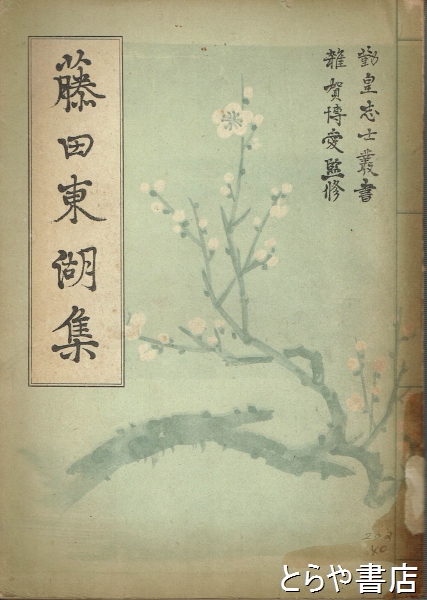 勤皇志士叢書
雑賀博愛監修
藤田東湖集
とらや書店